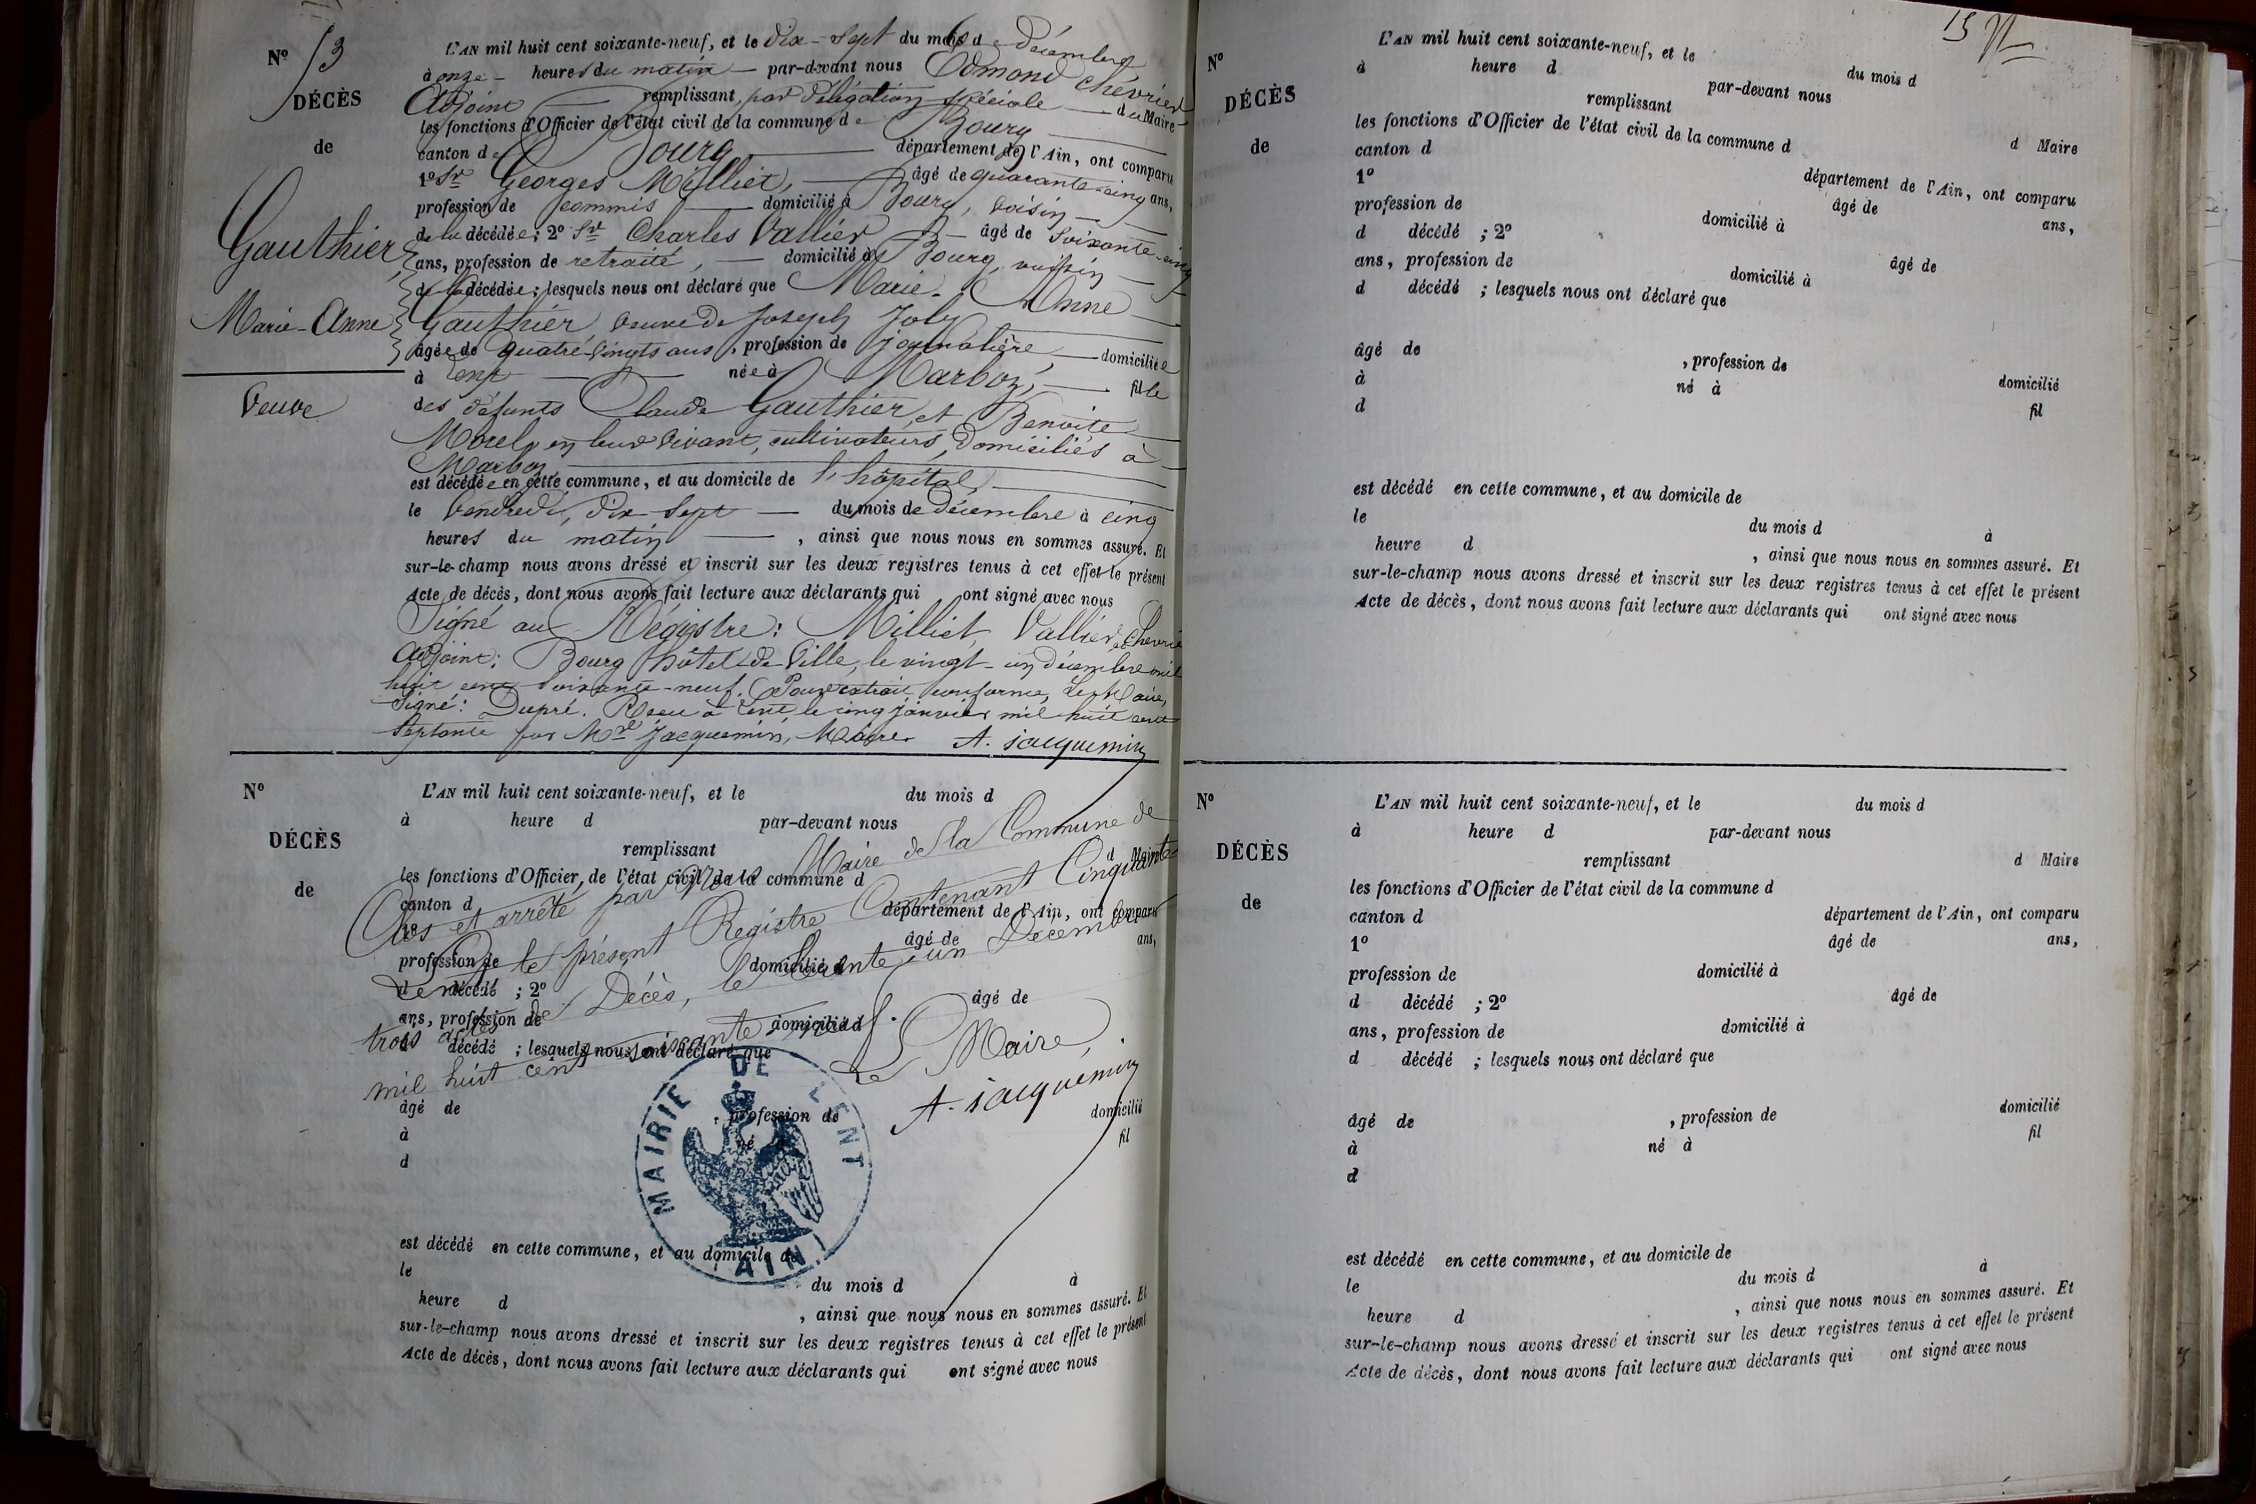 Nº 53
DÉCÈS
de
Gauthier
Marie-Anne
Veuve
L'AN mil huit cent soixante-neuf, et le dix-sept du mois de décembre
à onze heures du matin par-devant nous Edmond Chevrier
Adjoint remplissant par délégation spéciale du Maire
les fonctions d'Officier de l'état civil de la commune de Bourg
canton de Bourg département de l'Ain, ont comparu
1º Sr Georges Milliet, âgé de quarante-cinq ans,
profession de commis domicilié à Bourg, voisin
de la décédée; 2º Sr Charles Vallier âgé de soixante-cinq
ans, profession de retraité, domicilié à Bourg, voisin
de la décédée; lesquels nous ont déclaré que Marie-Anne
Gauthier veuve de Joseph Joly
âgée de quatre-vingts ans, profession de journalière domiciliée
à Lent née à Marboz, fille
des défunts Claude Gauthier, et Benoite
Morel, en leur vivant, cultivateurs, domiciliés à
Marboz
est décédée en cette commune, et au domicile de l'hôpital,
le vendredi, dix-sept du mois de décembre à cinq
heures du matin, ainsi que nous nous en sommes assuré. Et
sur-le-champ nous avons dressé et inscrit sur les deux registres tenus à cet effet le présent
Acte de décès, dont nous avons fait lecture aux déclarants qui ont signé avec nous
Signé au Régistre: Milliet, Vallier, et Chevrier
Adjoint: Bourg hôtel-de-Ville, le vingt-un décembre mil
huit cent soixante-neuf. Pour extrait conforme, Le Maire,
Signé: Dupré. Reçu à Lent, le cinq janvier mil huit cent
septante par Mr Jacquemin, Maire. A. Jacquemin
Nº
DÉCÈS
de
L'AN mil huit cent soixante-neuf, et le du mois d
à heure d par-devant nous
remplissant d Maire
les fonctions d'Officier de l'état civil de la commune d
canton d département de l'Ain, ont comparu
1º âgé de ans,
profession de domicilié à
d décédé ; 2º âgé de
ans, profession de domicilié à
d décédé ; lesquels nous ont déclaré que
âgé de , profession de domicilié
à né à fil
d
est décédé en cette commune, et au domicile de
le du mois d à
heure d , ainsi que nous nous en sommes assuré. Et
sur-le-champ nous avons dressé et inscrit sur les deux registres tenus à cet effet le présent
Acte de décès, dont nous avons fait lecture aux déclarants qui ont signé avec nous
Clos et arrêté par nous Maire de la Commune de
Lent le présent Registre Contenant Cinquante
trois actes de Décès, le trente un Décembre
mil huit cent soixante neuf.
Le Maire,
A. Jacquemin
MAIRIE DE LENT
(AIN)
15
Nº
DÉCÈS
de
L'AN mil huit cent soixante-neuf, et le du mois d
à heure d par-devant nous
remplissant d Maire
les fonctions d'Officier de l'état civil de la commune d
canton d département de l'Ain, ont comparu
1º âgé de ans,
profession de domicilié à
d décédé ; 2º âgé de
ans, profession de domicilié à
d décédé ; lesquels nous ont déclaré que
âgé de , profession de domicilié
à né à fil
d
est décédé en cette commune, et au domicile de
le du mois d à
heure d , ainsi que nous nous en sommes assuré. Et
sur-le-champ nous avons dressé et inscrit sur les deux registres tenus à cet effet le présent
Acte de décès, dont nous avons fait lecture aux déclarants qui ont signé avec nous
Nº
DÉCÈS
de
L'AN mil huit cent soixante-neuf, et le du mois d
à heure d par-devant nous
remplissant d Maire
les fonctions d'Officier de l'état civil de la commune d
canton d département de l'Ain, ont comparu
1º âgé de ans,
profession de domicilié à
d décédé ; 2º âgé de
ans, profession de domicilié à
d décédé ; lesquels nous ont déclaré que
âgé de , profession de domicilié
à né à fil
d
est décédé en cette commune, et au domicile de
le du mois d à
heure d , ainsi que nous nous en sommes assuré. Et
sur-le-champ nous avons dressé et inscrit sur les deux registres tenus à cet effet le présent
Acte de décès, dont nous avons fait lecture aux déclarants qui ont signé avec nous